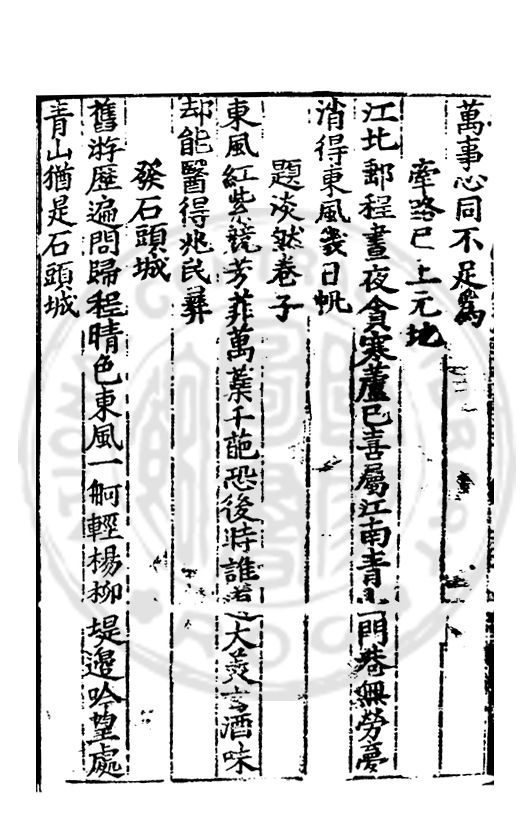 萬事心同不足為
牽路已上元地
江北郵程晝夜貪寒蘆已喜屬江南青山一門巷無勞憂
消得東風幾日帆
題淡然卷子
東風紅紫競芳菲萬蘂千葩恐後時誰道大羹玄酒味
却能醫得兆民彝
發石頭城
舊游歷遍問歸程晴色東風一舸輕楊柳堤邊吟望處
青山猶是石頭城